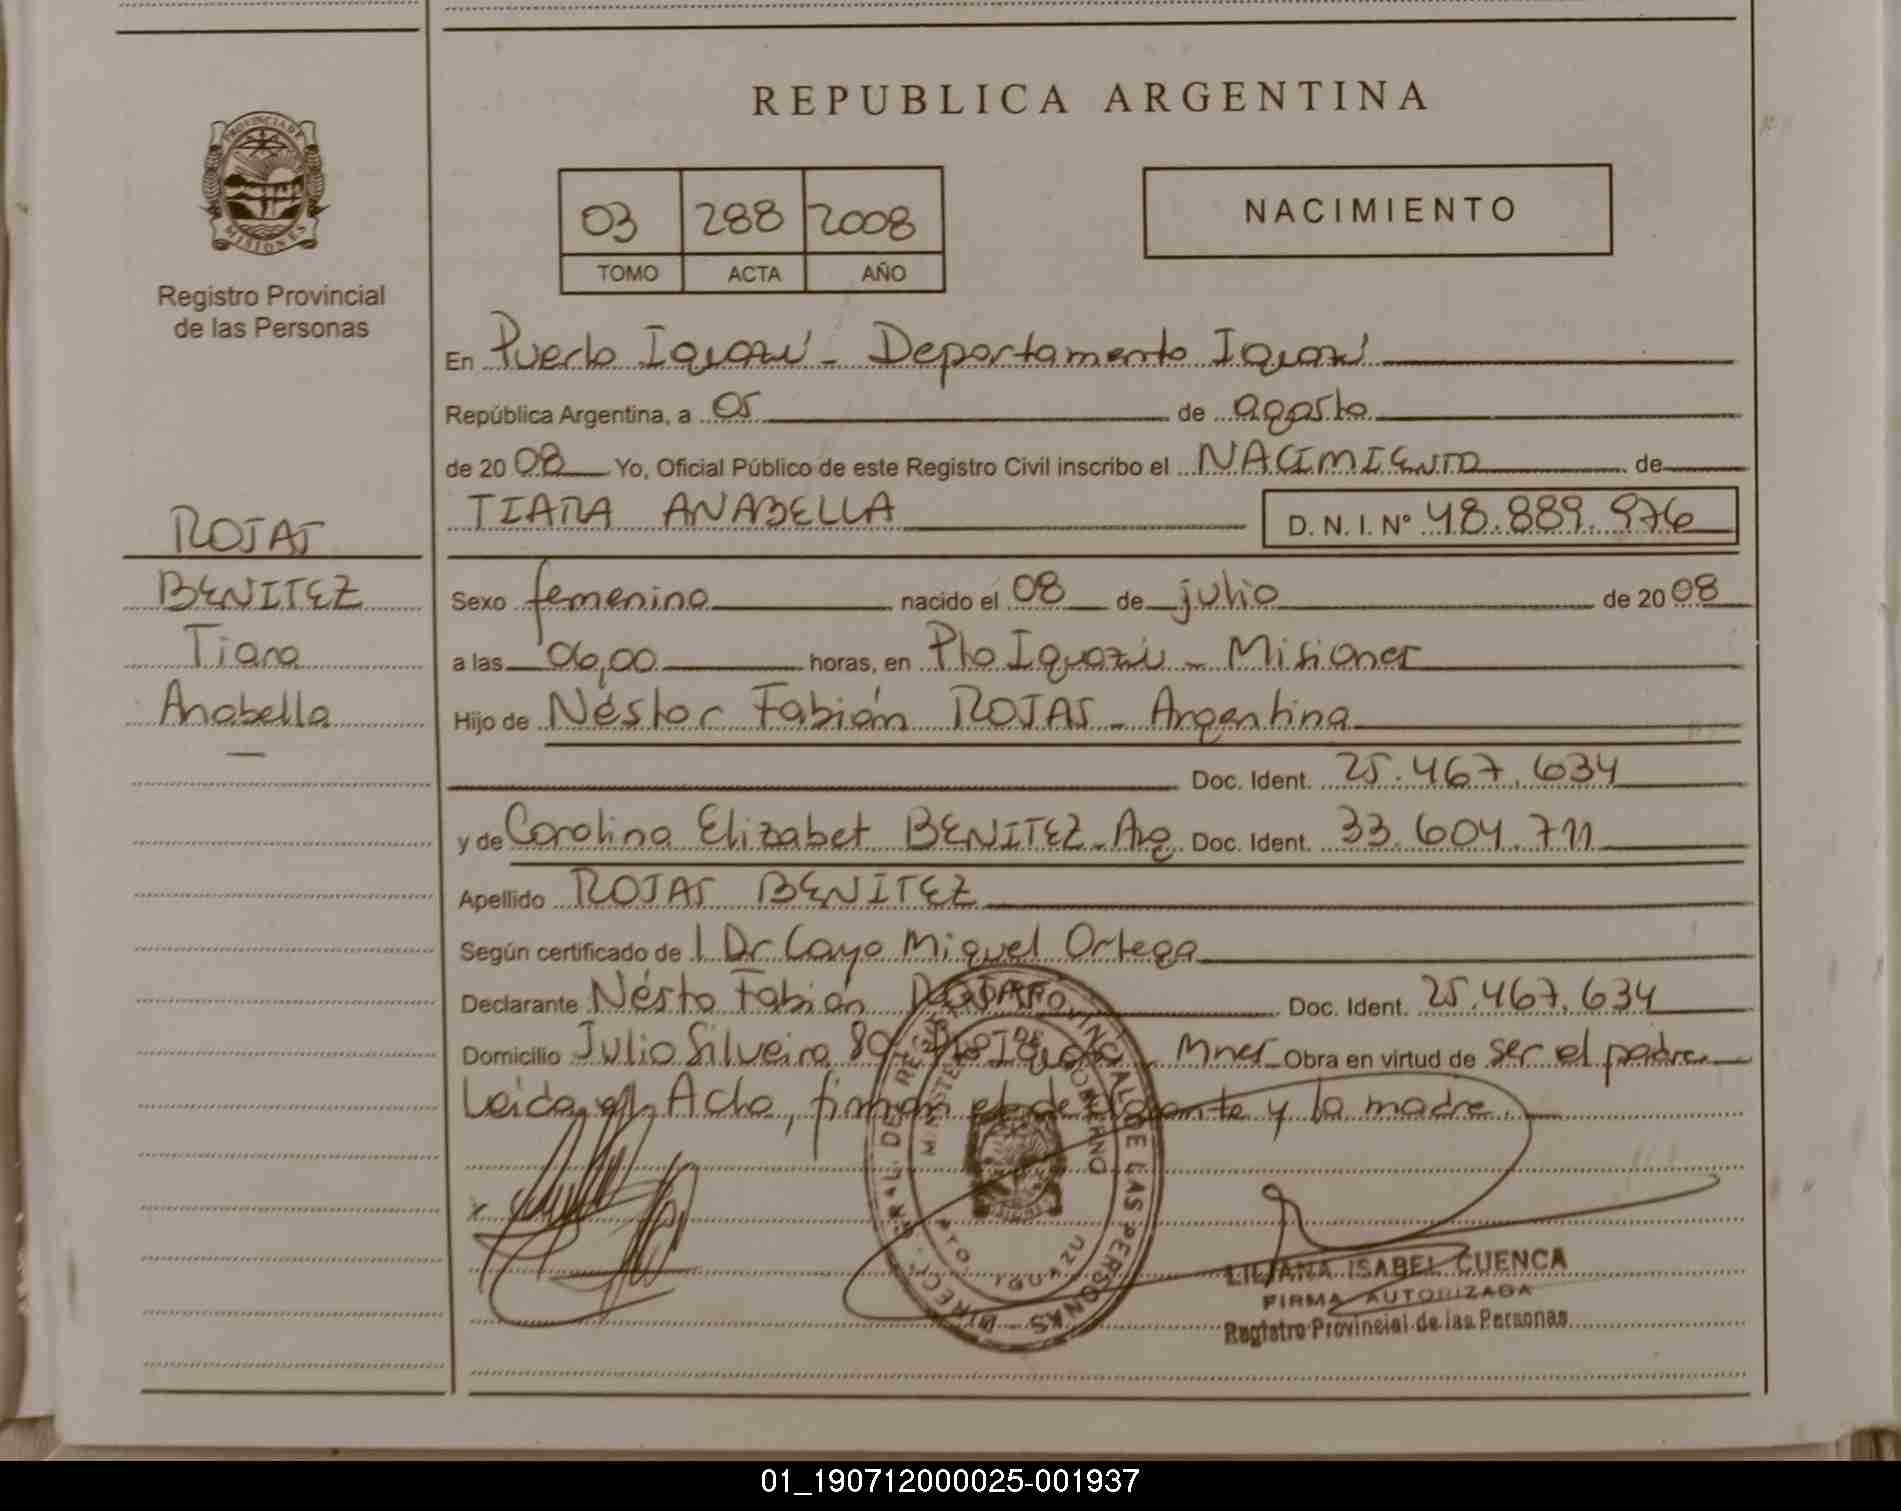 REPUBLICA ARGENTINA
PROVINCIA DE
MISIONES
Registro Provincial
de las Personas
03 288 2008
TOMO ACTA AÑO
NACIMIENTO
En Puerto Iguazú - Departamento Iguazú
República Argentina, a 05 de agosto
de 2008 Yo, Oficial Público de este Registro Civil inscribo el NACIMIENTO de
TIARA ANABELLA D. N. I. N° 48.889.976
ROJAS
BENITEZ
Tiara
Anabella
Sexo femenino nacido el 08 de julio de 2008
a las 06,00 horas, en Pto Iguazú - Misiones
Hijo de Néstor Fabián ROJAS - Argentina
Doc. Ident. 25.467.634
y de Carolina Elizabet BENITEZ - Arg Doc. Ident. 33.604.711
Apellido ROJAS BENITEZ
Según certificado de l Dr Cayo Miguel Ortega
Declarante Nésto Fabián ROJAS Doc. Ident. 25.467.634
Domicilio Julio Silveira 89 - Pto Iguazú - Mnes Obra en virtud de ser el padre
Leida el Acta, firman el declarante y la madre.
DE REGISTRO PROVINCIAL DE LAS PERSONAS
MINISTERIO DE GOBIERNO
PTO. IGUAZU
LILIANA ISABEL CUENCA
FIRMA AUTORIZADA
Registro Provincial de las Personas
01_190712000025-001937